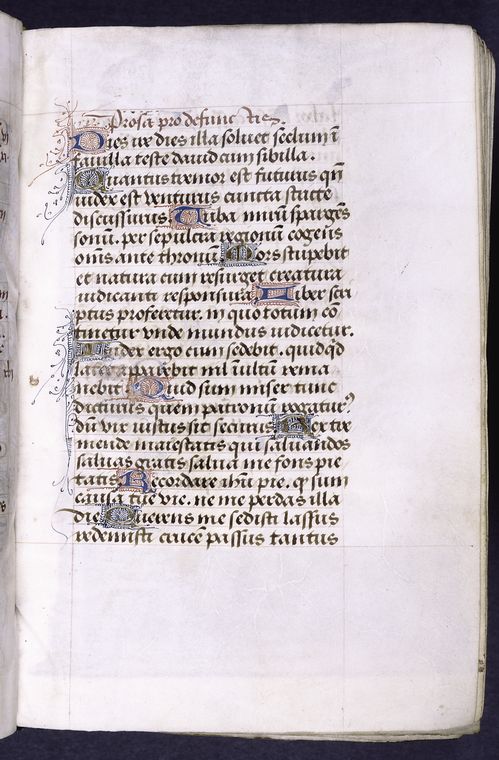 Prosa pro defunctis.
Dies ire dies illa solvet seclum ī
favilla teste david cum sibilla.
Quantus tremor est futurus qn̄
iudex est venturus cuncta stricte
discussurus. Tuba mirū spargēs
sonū. per sepulcra regionū cogens
om̄s ante thronū. Mors stupebit
et natura cum resurget creatura
iudicanti responsura. Liber scri
ptus proferetur. in quo totum cō
tinetur unde mundus iudicetur.
Iudex ergo cum sedebit. quidq̄d
latet apparebit nil īultū rema
nebit. Quid sum miser tunc
dicturus quem patronū rogatur⁹
dū vix iustus sit securus. Rex tre
mende maiestatis qui salvandos
salvas gratis salva me fons pie
tatis. Recordare ihū pie. q̄ sum
causa tue vie. ne me perdas illa
die. Querens me sedisti lassus
redemisti crucē passus tantus